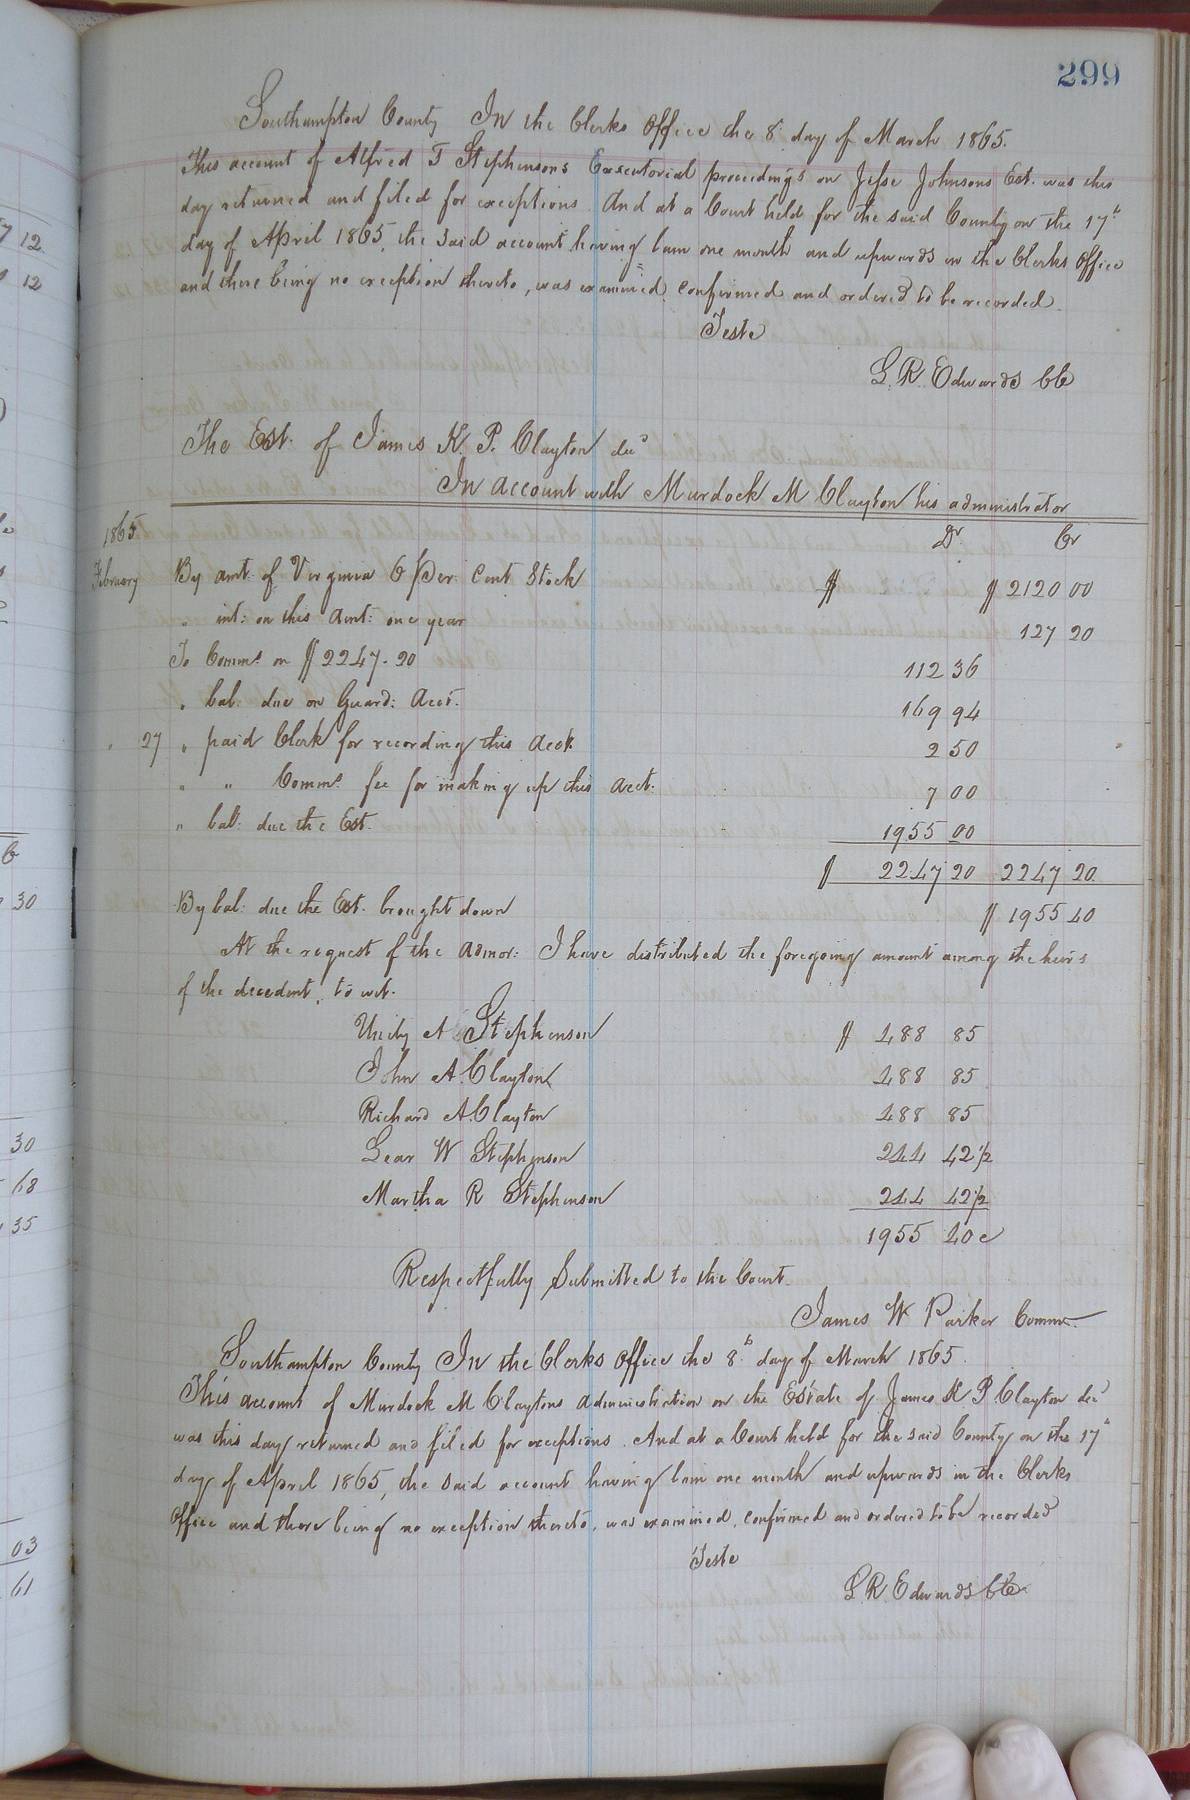 299
Southampton County In the Clerks Office the 8th day of March 1865.
This account of Alfred T Stephensons Executorial proceedings on Jesse Johnsons Est. was this
day returned and filed for exceptions. And at a Court held for the said County on the 17th
day of April 1865, the said account having lain one month and upwards in the Clerks Office
and there being no exception thereto, was examined, confirmed and ordered to be recorded.
Teste
L. R. Edwards CC
The Est. of James K. P. Clayton decd
In account with Murdock M Clayton his administrator
1865 Dr. Cr
February By amt. of Virginia 6 Per Cent Stock $ $ 2120 00
" int: on this Amt: one year 127 20
To Comms. on $2247.20 112 36
" bal: due on Guard: Acct. 169 94
" 27 " paid Clerk for recording this Acct. 2 50
" " Commr. fee for making up this acct. 7 00
" bal: due the Est. 1955 00
$ 2247 20 2247 20
By bal: due the Est. brought down $ 1955 40
At the request of the Admor: I have distributed the foregoing amount among the heirs
of the decedent, to wit.
Unity A Stephenson $ 488 85
John A. Clayton 488 85
Richard A. Clayton 488 85
Lear W Stephenson 244 42 1/2
Martha R Stephenson 244 42 1/2
1955 40 c
Respectfully Submitted to the Court.
James W Parker Commr.
Southampton County In the Clerks Office the 8th day of March 1865
This account of Murdock M Claytons administration on the Estate of James K P. Clayton decd
was this day returned and filed for exceptions. And at a Court held for the said County on the 17th
day of April 1865, the said account having lain one month and upwards in the Clerks
Office and there being no exception thereto, was examined, confirmed and ordered to be recorded
Teste
L R. Edwards CC
7 12
12
30
30
68
35
03
61